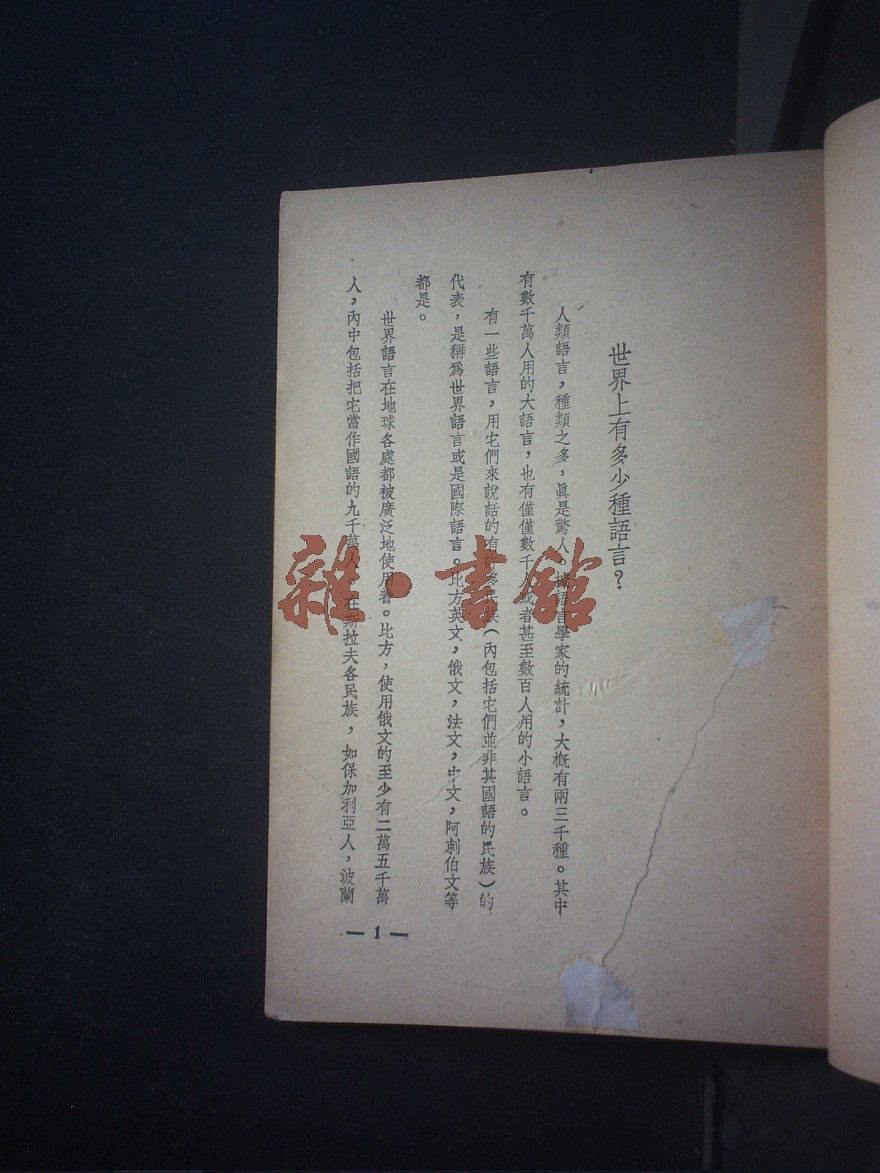 世界上有多少種語言？
人類語言，種類之多，眞是驚人。據語言學家的統計，大槪有兩三千種。其中
有數千萬人用的大語言，也有僅僅數千人或者甚至數百人用的小語言。
有一些語言，用它們來說話的有許多民族（內包括它們並非其國語的民族）的
代表，是稱爲世界語言或是國際語言。比方英文，俄文，法文，中文，阿剌伯文等
都是。
世界語言在地球各處都被廣泛地使用着。比方，使用俄文的至少有二萬五千萬
人，內中包括把它當作國語的九千萬人 在斯拉夫各民族，如保加利亞人，波蘭
— 1 —
雜·書館